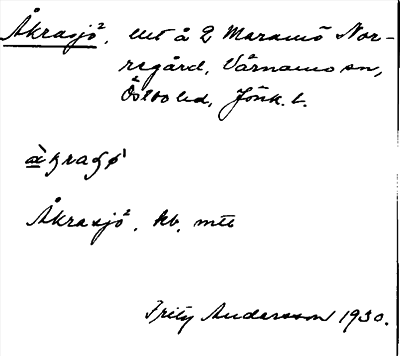 Åkrasjö², ent å 2 Maramö Nor-
regård, Värnamo sn,
Östbo hd, Jönk. l.
Åkrasjö², kb, mtl
Fritz Andersson 1930.